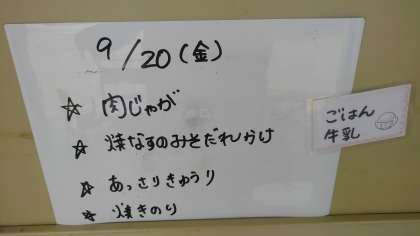 9/20(金)
☆ 肉じゃが
☆ 焼なすのみそだれかけ
☆ あっさりきゅうり
☆ 焼きのり
ごはん
牛乳